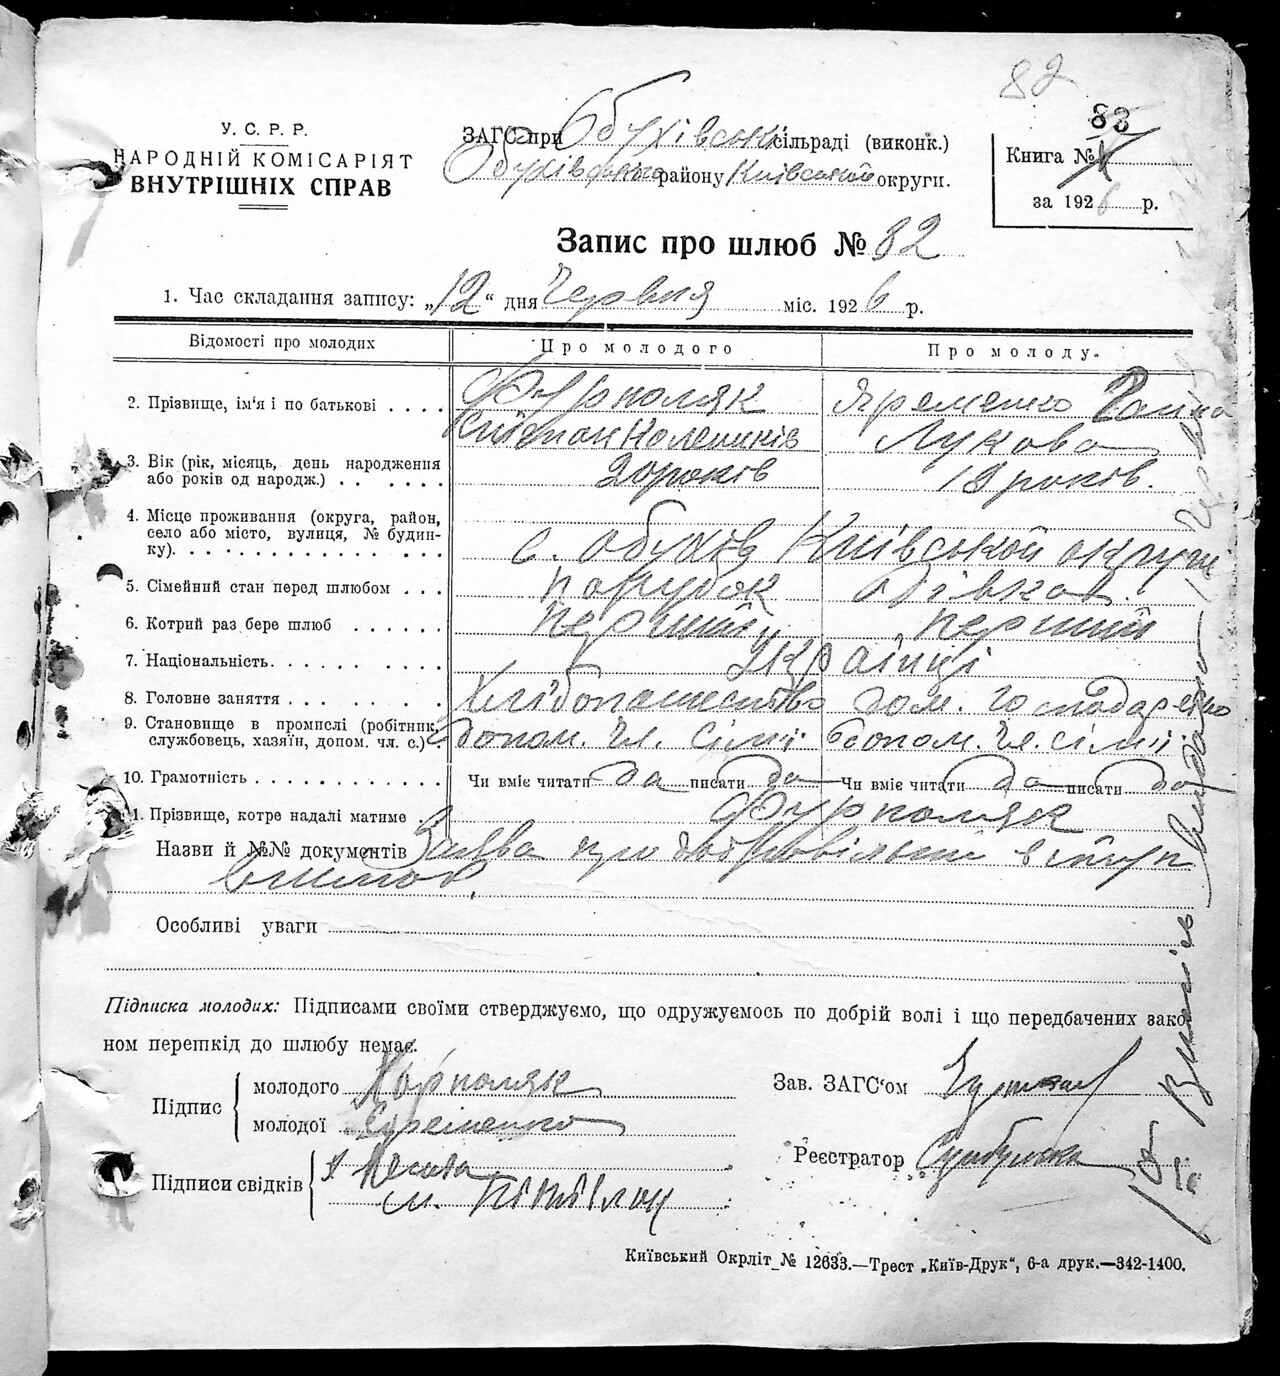 82
У. С. Р. Р.
НАРОДНІЙ КОМІСАРІЯТ
ВНУТРІШНІХ СПРАВ
ЗАГС при Обухівській сільраді (виконк.)
Обухівського району Київської округи.
83
Книга №
за 1926 р.
Запис про шлюб № 82
1. Час складання запису: „12" дня Червня міс. 1926 р.
Відомості про молодих Про молодого Про молоду.
2. Прізвище, ім'я і по батькові . . . . Фурполяк Яременко
Лукова
3. Вік (рік, місяць, день народження
або років од народж.) . . . . . . 20 років 19 років.
4. Місце проживання (округа, район,
село або місто, вулиця, № будин-
ку). . . . . . . . . . . . . . . . с. Обухів Київської округи
5. Сімейний стан перед шлюбом . . . парубок дівка
6. Котрий раз бере шлюб . . . . . . перший перший
7. Національність. . . . . . . . . Українці
8. Головне заняття . . . . . . . . Хліборобство дом. господарство
9. Становище в промислі (робітник,
службовець, хазяїн, допом. чл. с.) допом. чл. сімії допом. чл. сімії
10. Грамотність . . . . . . . . . . . Чи вміє читати да писати да Чи вміє читати да писати да
11. Прізвище, котре надалі матиме . Фурполяк
Назви й №№ документів Заява про добровільний вступ
Особливі уваги
Підписка молодих: Підписами своїми стверджуємо, що одружуємось по добрій волі і що передбачених зако-
ном перешкід до шлюбу немає.
Підпис
молодого Фурполяк
молодої Яременко
Підписи свідків
Зав. ЗАГС'ом
Реєстратор
Київський Окрліт № 12633.—Трест „Київ-Друк", 6-а друк.—342-1400.